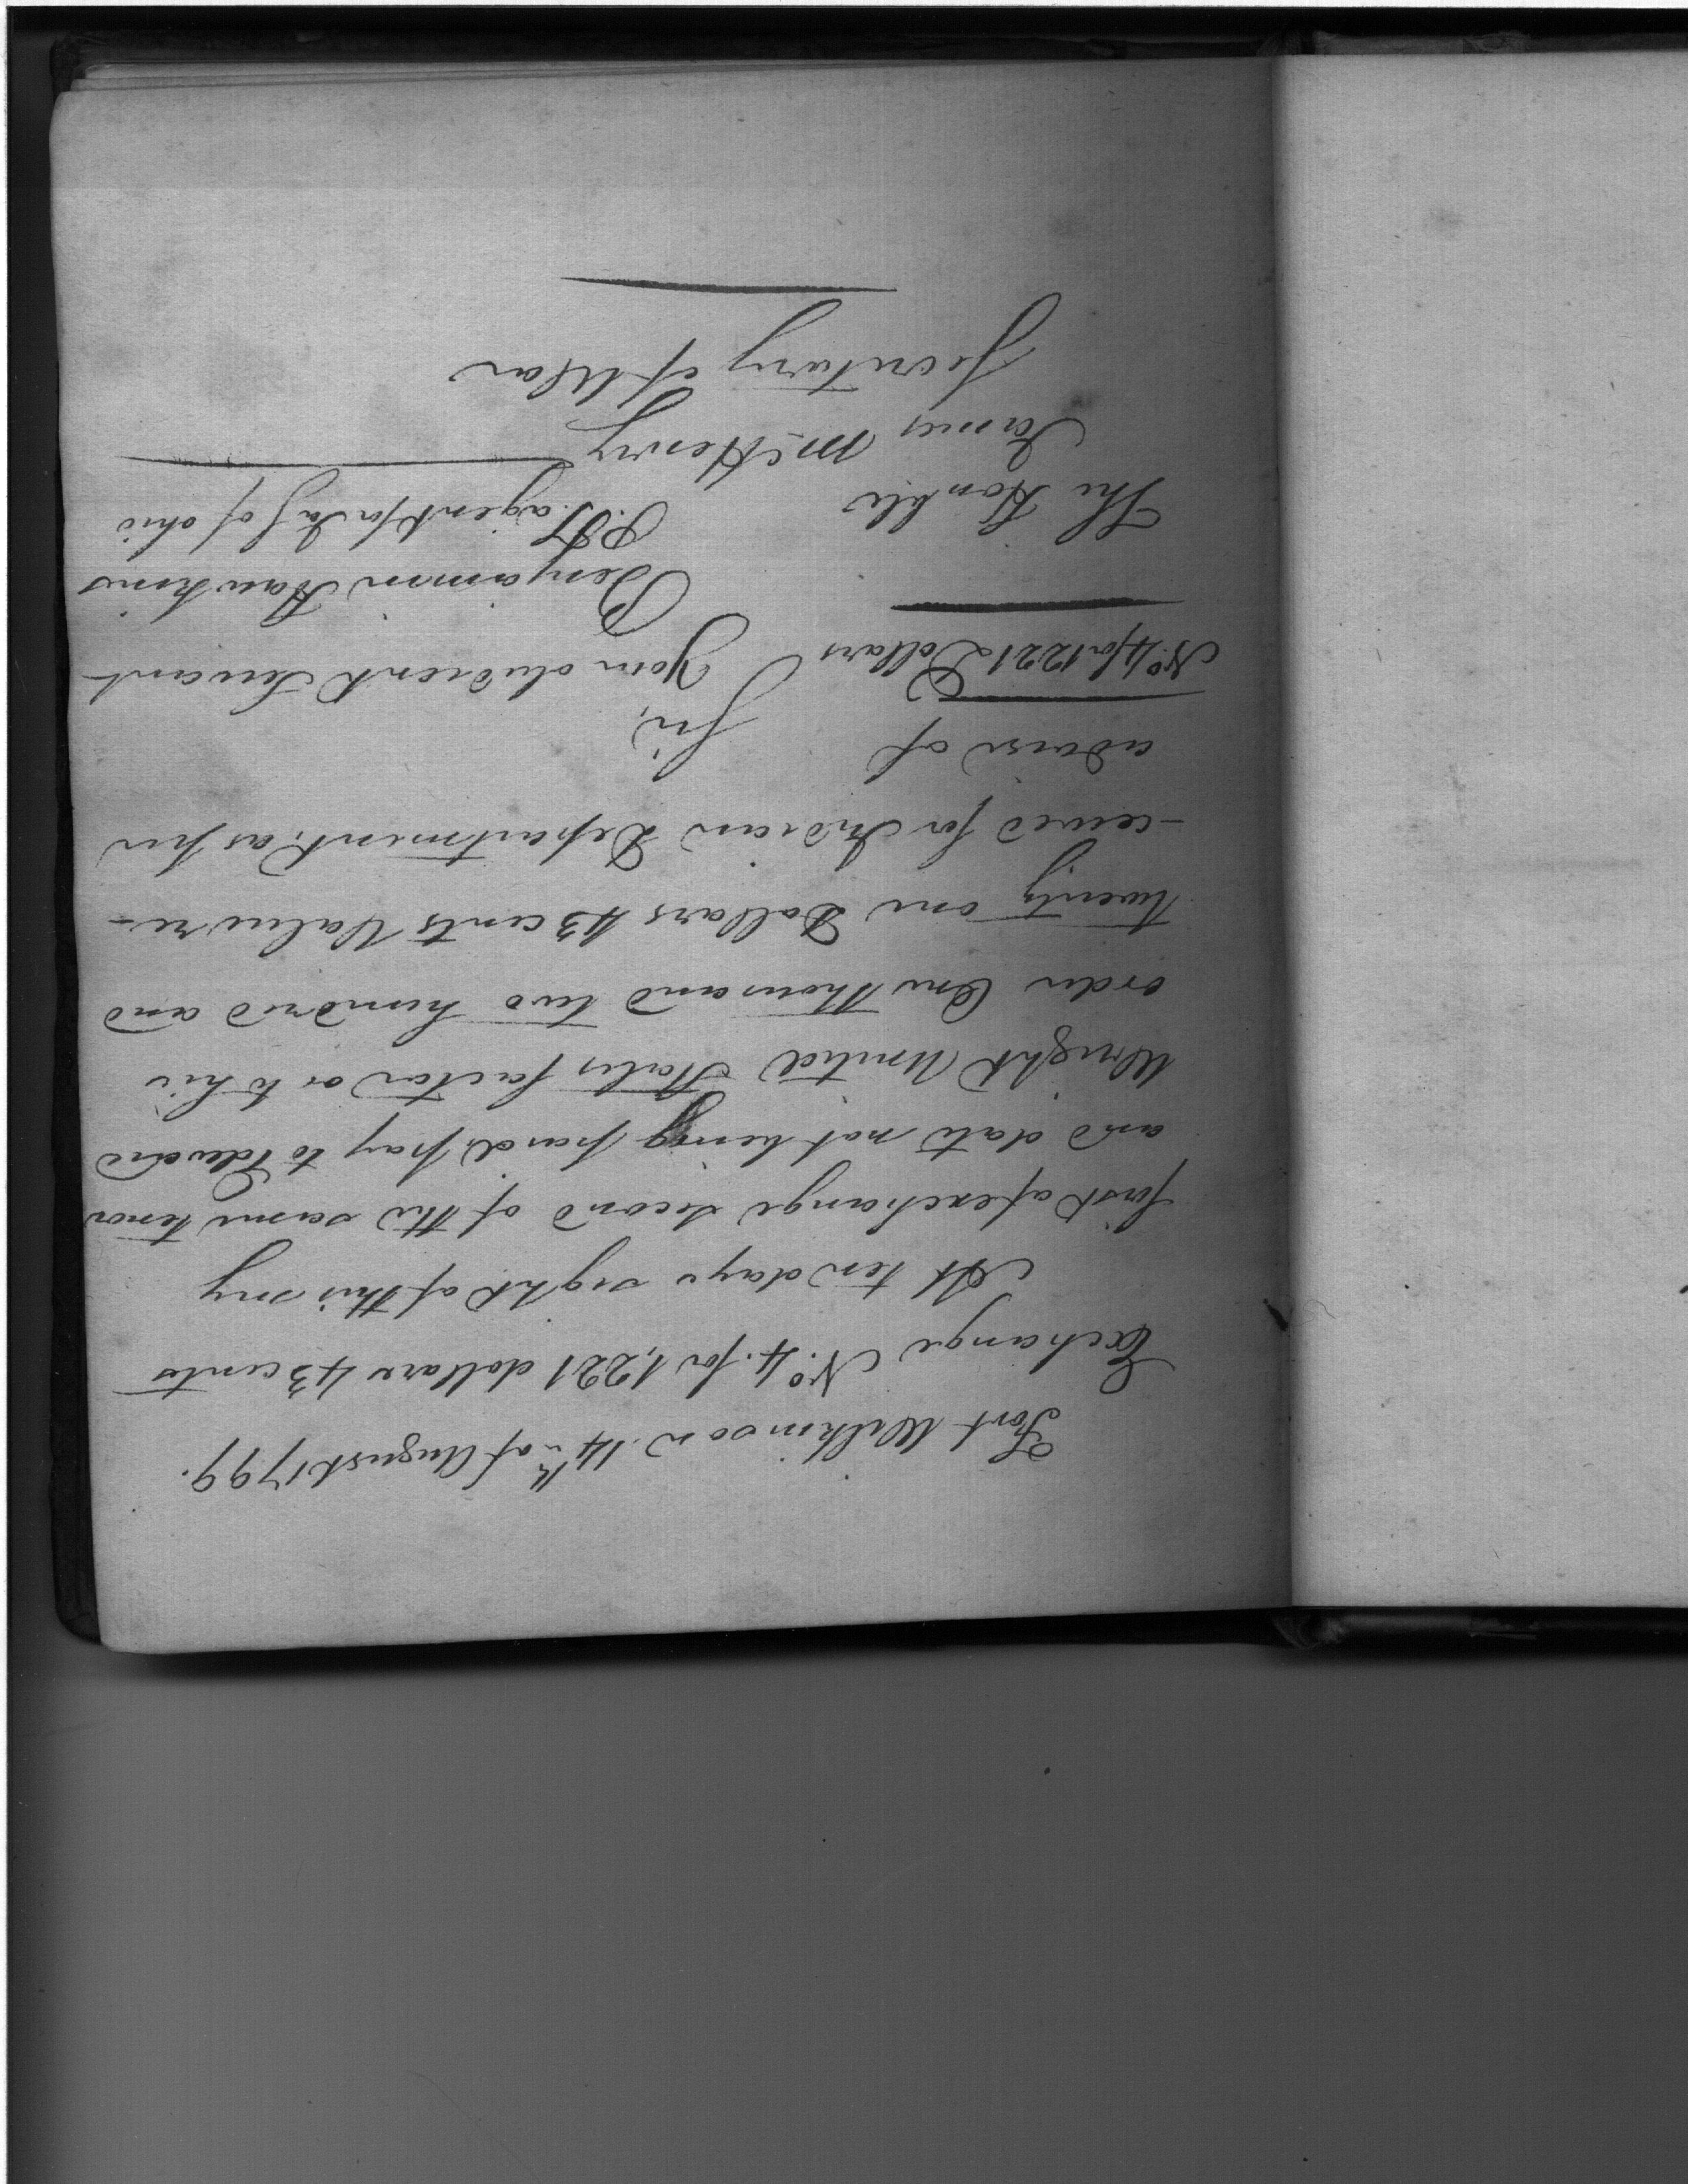 Fort Wilkinson 14th of August 1799.
Exchange No. 4. for 1,221 dollars 43 cents
At ten days sight of this my
first of exchange second of the same tenor
and date not being paid pay to Edward
Wright United States factor or to his
order One thousand two hundred and
twenty one Dollars 43 cents Value re-
-ceived for Indian Department, as per
advise of
Sir,
No. 4 for 1221 Dollars
Your obedient Servant
Benjamin Hawkins
The Honble
agent for I a S of ohio
James McHenry
Secretary of War